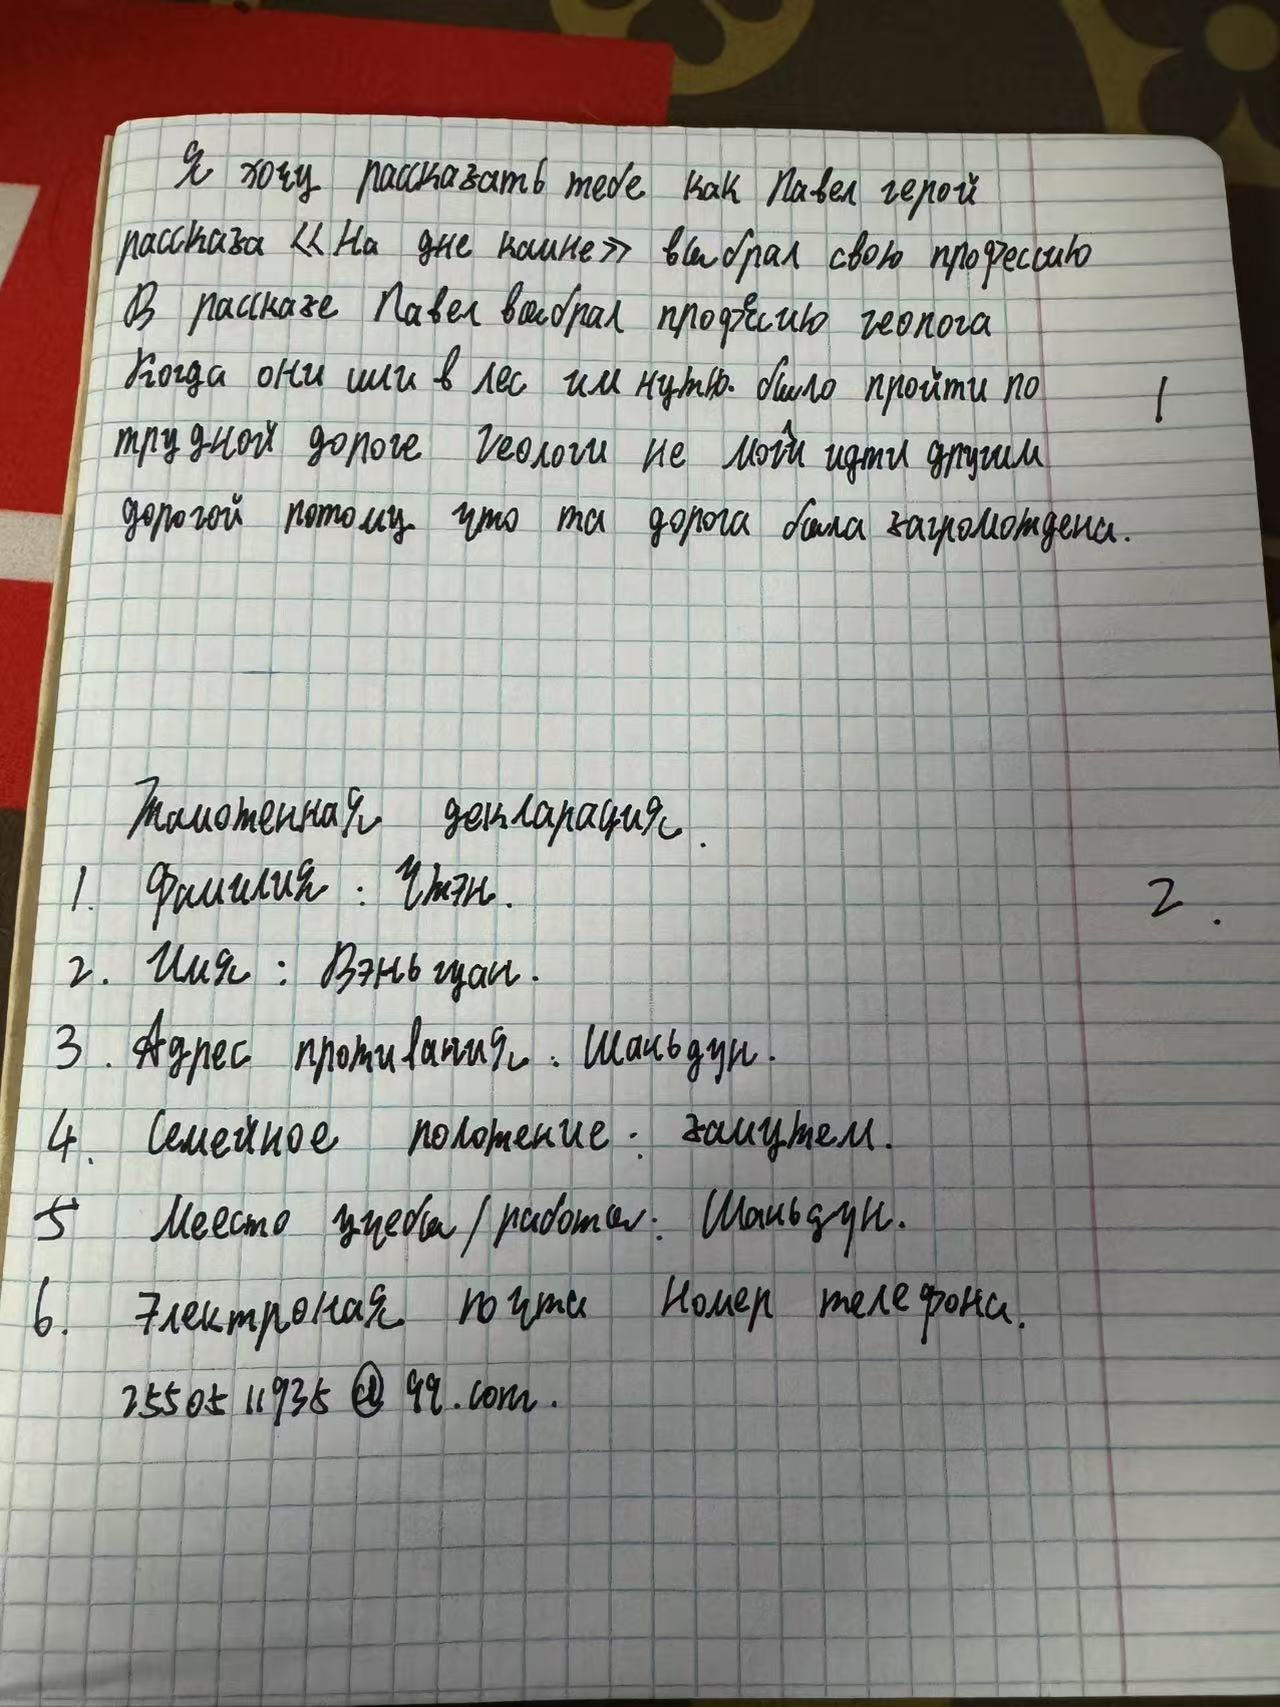 Я хочу рассказать тебе как Павел герой
рассказа «На дне камне» выбрал свою профессию
В рассказе Павел выбрал профессию геолога
Когда они шли в лес им нужно. было пройти по 1
трудной дороге Геологи не могли идти другим
дорогой потому что та дорога была загромождена.
Таможенная декларация.
1. Фамилия: Чжэн. 2.
2. Имя: Вэньгуан.
3. Адрес проживания: Шаньдун.
4. Семейное положение: замужем.
5 Меесто учебы/работы: Шаньдун.
6. Электроная почта Номер телефона.
2550511935@qq.com.